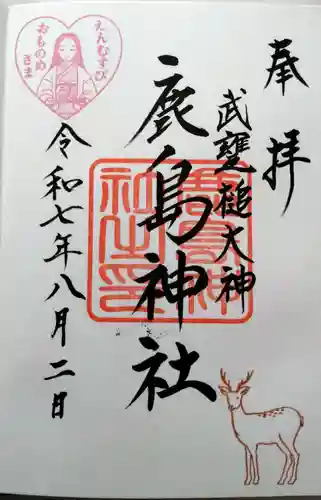 奉拝
武甕槌大神
鹿島神社
令和七年八月二日
えんむすび
おものめさま
鹿島神社之印